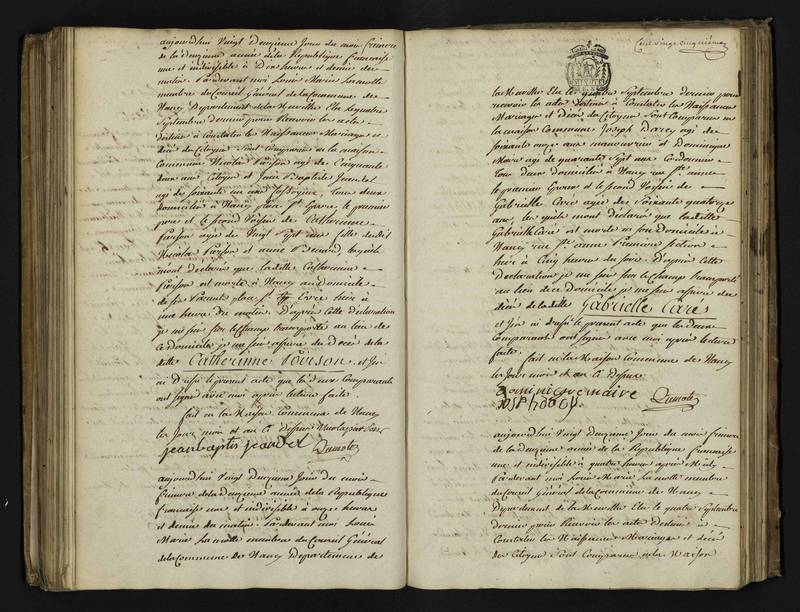 aujourd'hui Vingt Deuxieme Jour du mois frimaire
de la deuxieme année de la Republique française
une et indivisible à Dix heures et demie du
matin. Pardevant moi Louis Marie Lamotte
membre du Conseil Général de la Commune de
Nancy Département de la Meurthe Elu le quatre
Septembre dernier pour Recevoir les actes
destinés à Constater les Naissances Mariages et
décès des Citoyens Sont comparus en la maison
Commune Nicolas Poirson agé de Cinquante
deux ans Citoyen et Jean Baptiste Jeandel
agé de soixante un ans tous deux
domiciliés à Nancy place St Epvre le premier
pere et le second Voisin de Catherinne
Poirson agée de Vingt Sept ans fille dudit
Nicolas Poirson et anne lesquels
mont déclaré que ladite Catherinne
Poirson est morte à Nancy au domicile
de ses Parents place St Evre hier à
une heure du matin. D'après cette déclaration
je me suis sur le champ transporté au lieu de
ce domicile je me suis assuré du Décès de la
ditte Catherinne Poirson et J'en
ai Dressé le present acte que les deux Comparants
ont signé avec moi apres lecture faite.
fait en la Maison Commune de Nancy
les Jour, mois et an Ci dessus Nicolas poirson
jean baptis jeandel Lamotte
aujourd'hui Vingt Deuxieme Jour du mois
frimaire de la deuxieme année de la Republique
française une et indivisible à onze heures
et demie du matin. Pardevant moi Louis
Marie Lamotte membre du Conseil Général
de la Commune de Nancy Département de
Cent vingt cinquieme
la Meurthe Elu le quatre Septembre dernier pour
recevoir les actes destinés à Constater les Naissances
Mariages et décès des Citoyens Sont Comparus en
la maison Commune Joseph Darcy agé de
soixante onze ans manoeuvre et Dominique
Maire agé de quarante Sept ans Cordonnier
tous deux domiciliés à Nancy rue Ste anne
le premier Epoux et le second Voisin de
Gabrielle Care agée de Soixante quatorze
ans, les quels mont déclaré que ladite
Gabrielle Care est morte en son Domicile à
Nancy rue Ste anne Premiere section
hier à Cinq heures du soir. D'après cette
Déclaration je me suis sur le champ transporté
au lieu de ce Domicile je me suis assuré du
décès de ladite Gabrielle Care
et J'en ai dressé le present acte que les deux
Comparants ont signé avec moi après lecture
faite. fait en la Maison Commune de Nancy
les Jour mois et an Ci Dessus
dominique maire
Lamotte
aujourd'hui Vingt Deuxieme Jour du mois frimaire
de la deuxieme année de la Republique française
une et indivisible à quatre heures après Midy
Pardevant moi Louis Marie Lamotte membre
du Conseil Général de la Commune de Nancy
Département de la Meurthe Elu le quatre Septembre
dernier pour Recevoir les actes Destinés à
Constater les Naissances Mariages et décès
des Citoyens Sont Comparus en la Maison